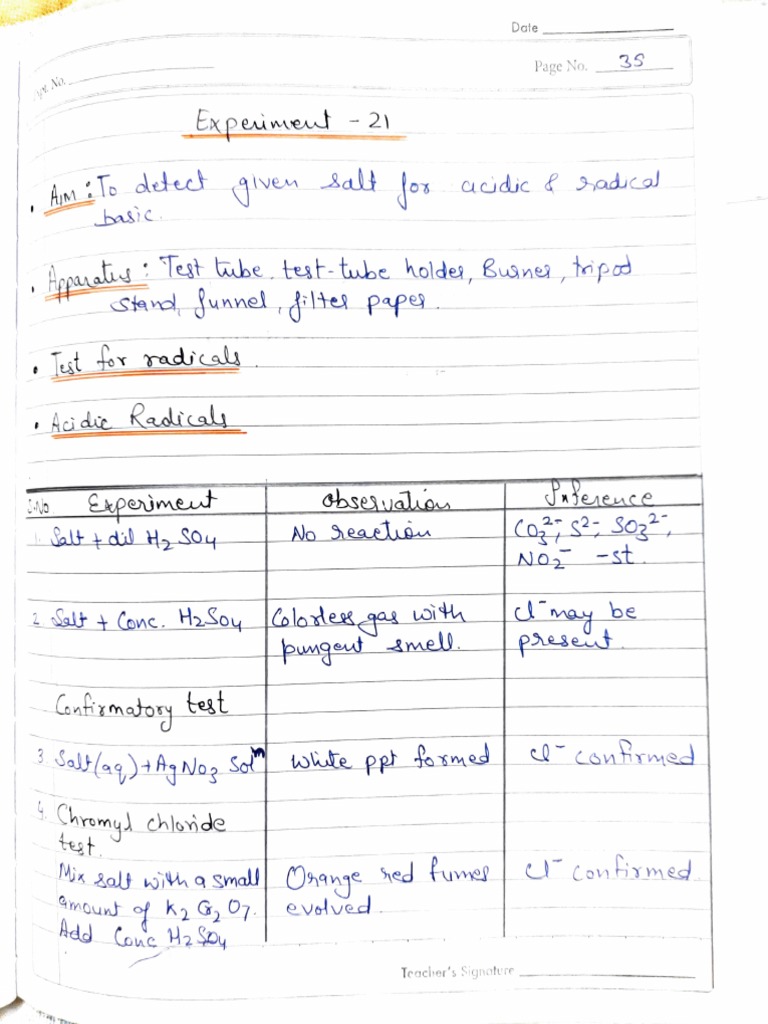 Date
Page No. 35
Expt. No.
Experiment - 21
• AIM : To detect given salt for acidic & radical
basic.
• Apparatus : Test tube, test-tube holder, Burner, tripod
stand, funnel, filter paper.
• Test for radicals.
• Acidic Radicals
S.No Experiment Observation Inference
1. Salt + dil H2SO4 No reaction CO3²⁻, S²⁻, SO3²⁻,
NO2⁻ -st.
2. Salt + Conc. H2SO4 Colorless gas with Cl⁻ may be
pungent smell. present.
Confirmatory test
3. Salt(aq) + AgNO3 Solⁿ White ppt formed Cl⁻ confirmed
4. Chromyl chloride
test.
Mix salt with a small Orange red fumes Cl⁻ confirmed.
amount of K2Cr2O7. evolved.
Add Conc H2SO4
Teacher's Signature